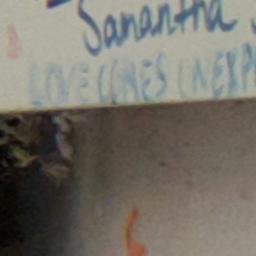 Samantha
LOVE COMES UNEXP